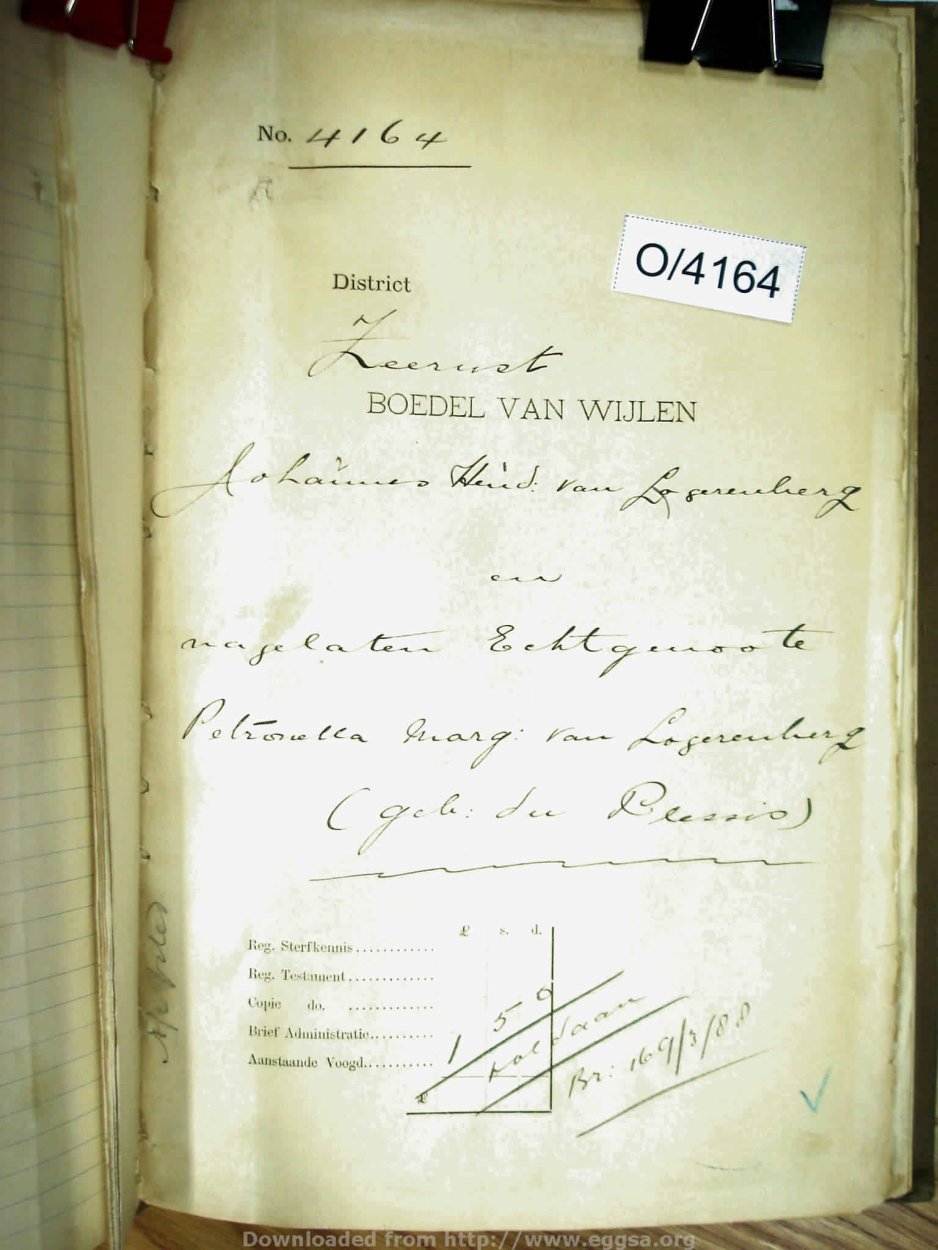 No. 4164
O/4164
District
Zeerust
BOEDEL VAN WIJLEN
Johannes Hend: van Logerenberg
en
nagelaten Echtgenoote
Petronella Marg: van Logerenberg
(geb: du Plessis)
£ s. d.
Reg. Sterfkennis............
Reg. Testament.............
Copie do. .............
Brief Administratie..........
Aanstaande Voogd...........
£ 1 5 0
Voldaan
Br: 169/3/88
Downloaded from http://www.eggsa.org